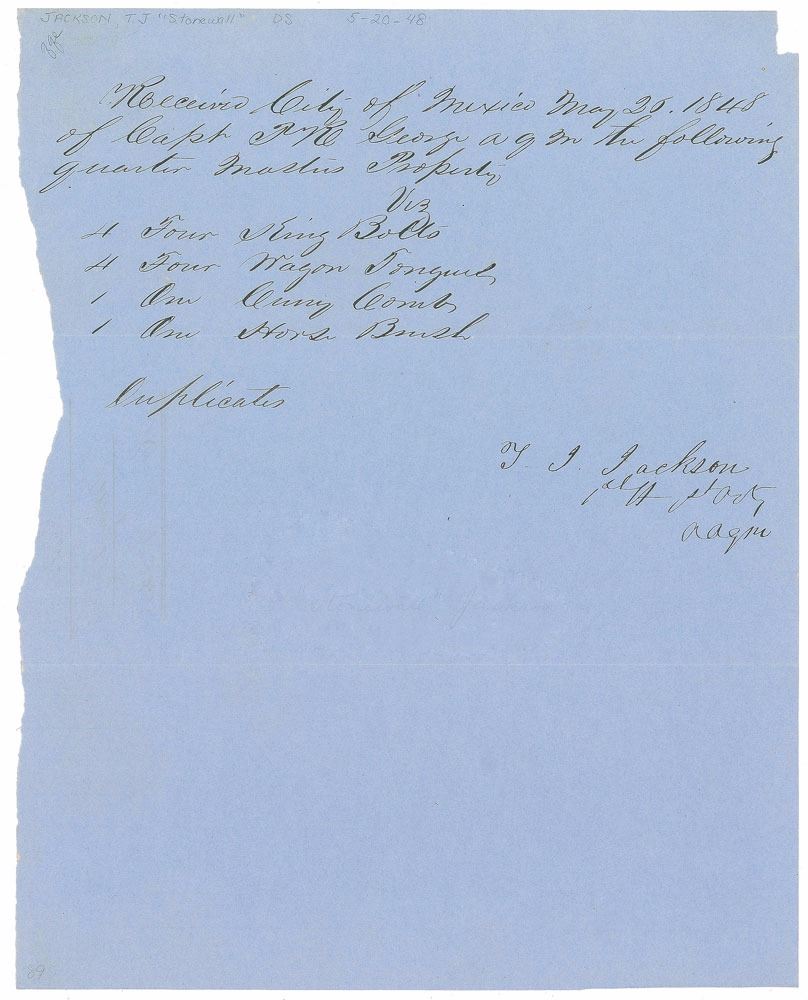 JACKSON, T. J "Stonewall" DS 5-20-48
Received City of Mexico May 20. 1848
of Capt P R George a q m the following
quarter Masters Property
Viz
4 Four King Bolts
4 Four Wagon Tongues
1 One Curry Comb
1 One Horse Brush
Duplicates
T. J. Jackson
1st Lt 1st Arty
a a q m
"Stonewall" Jackson
89